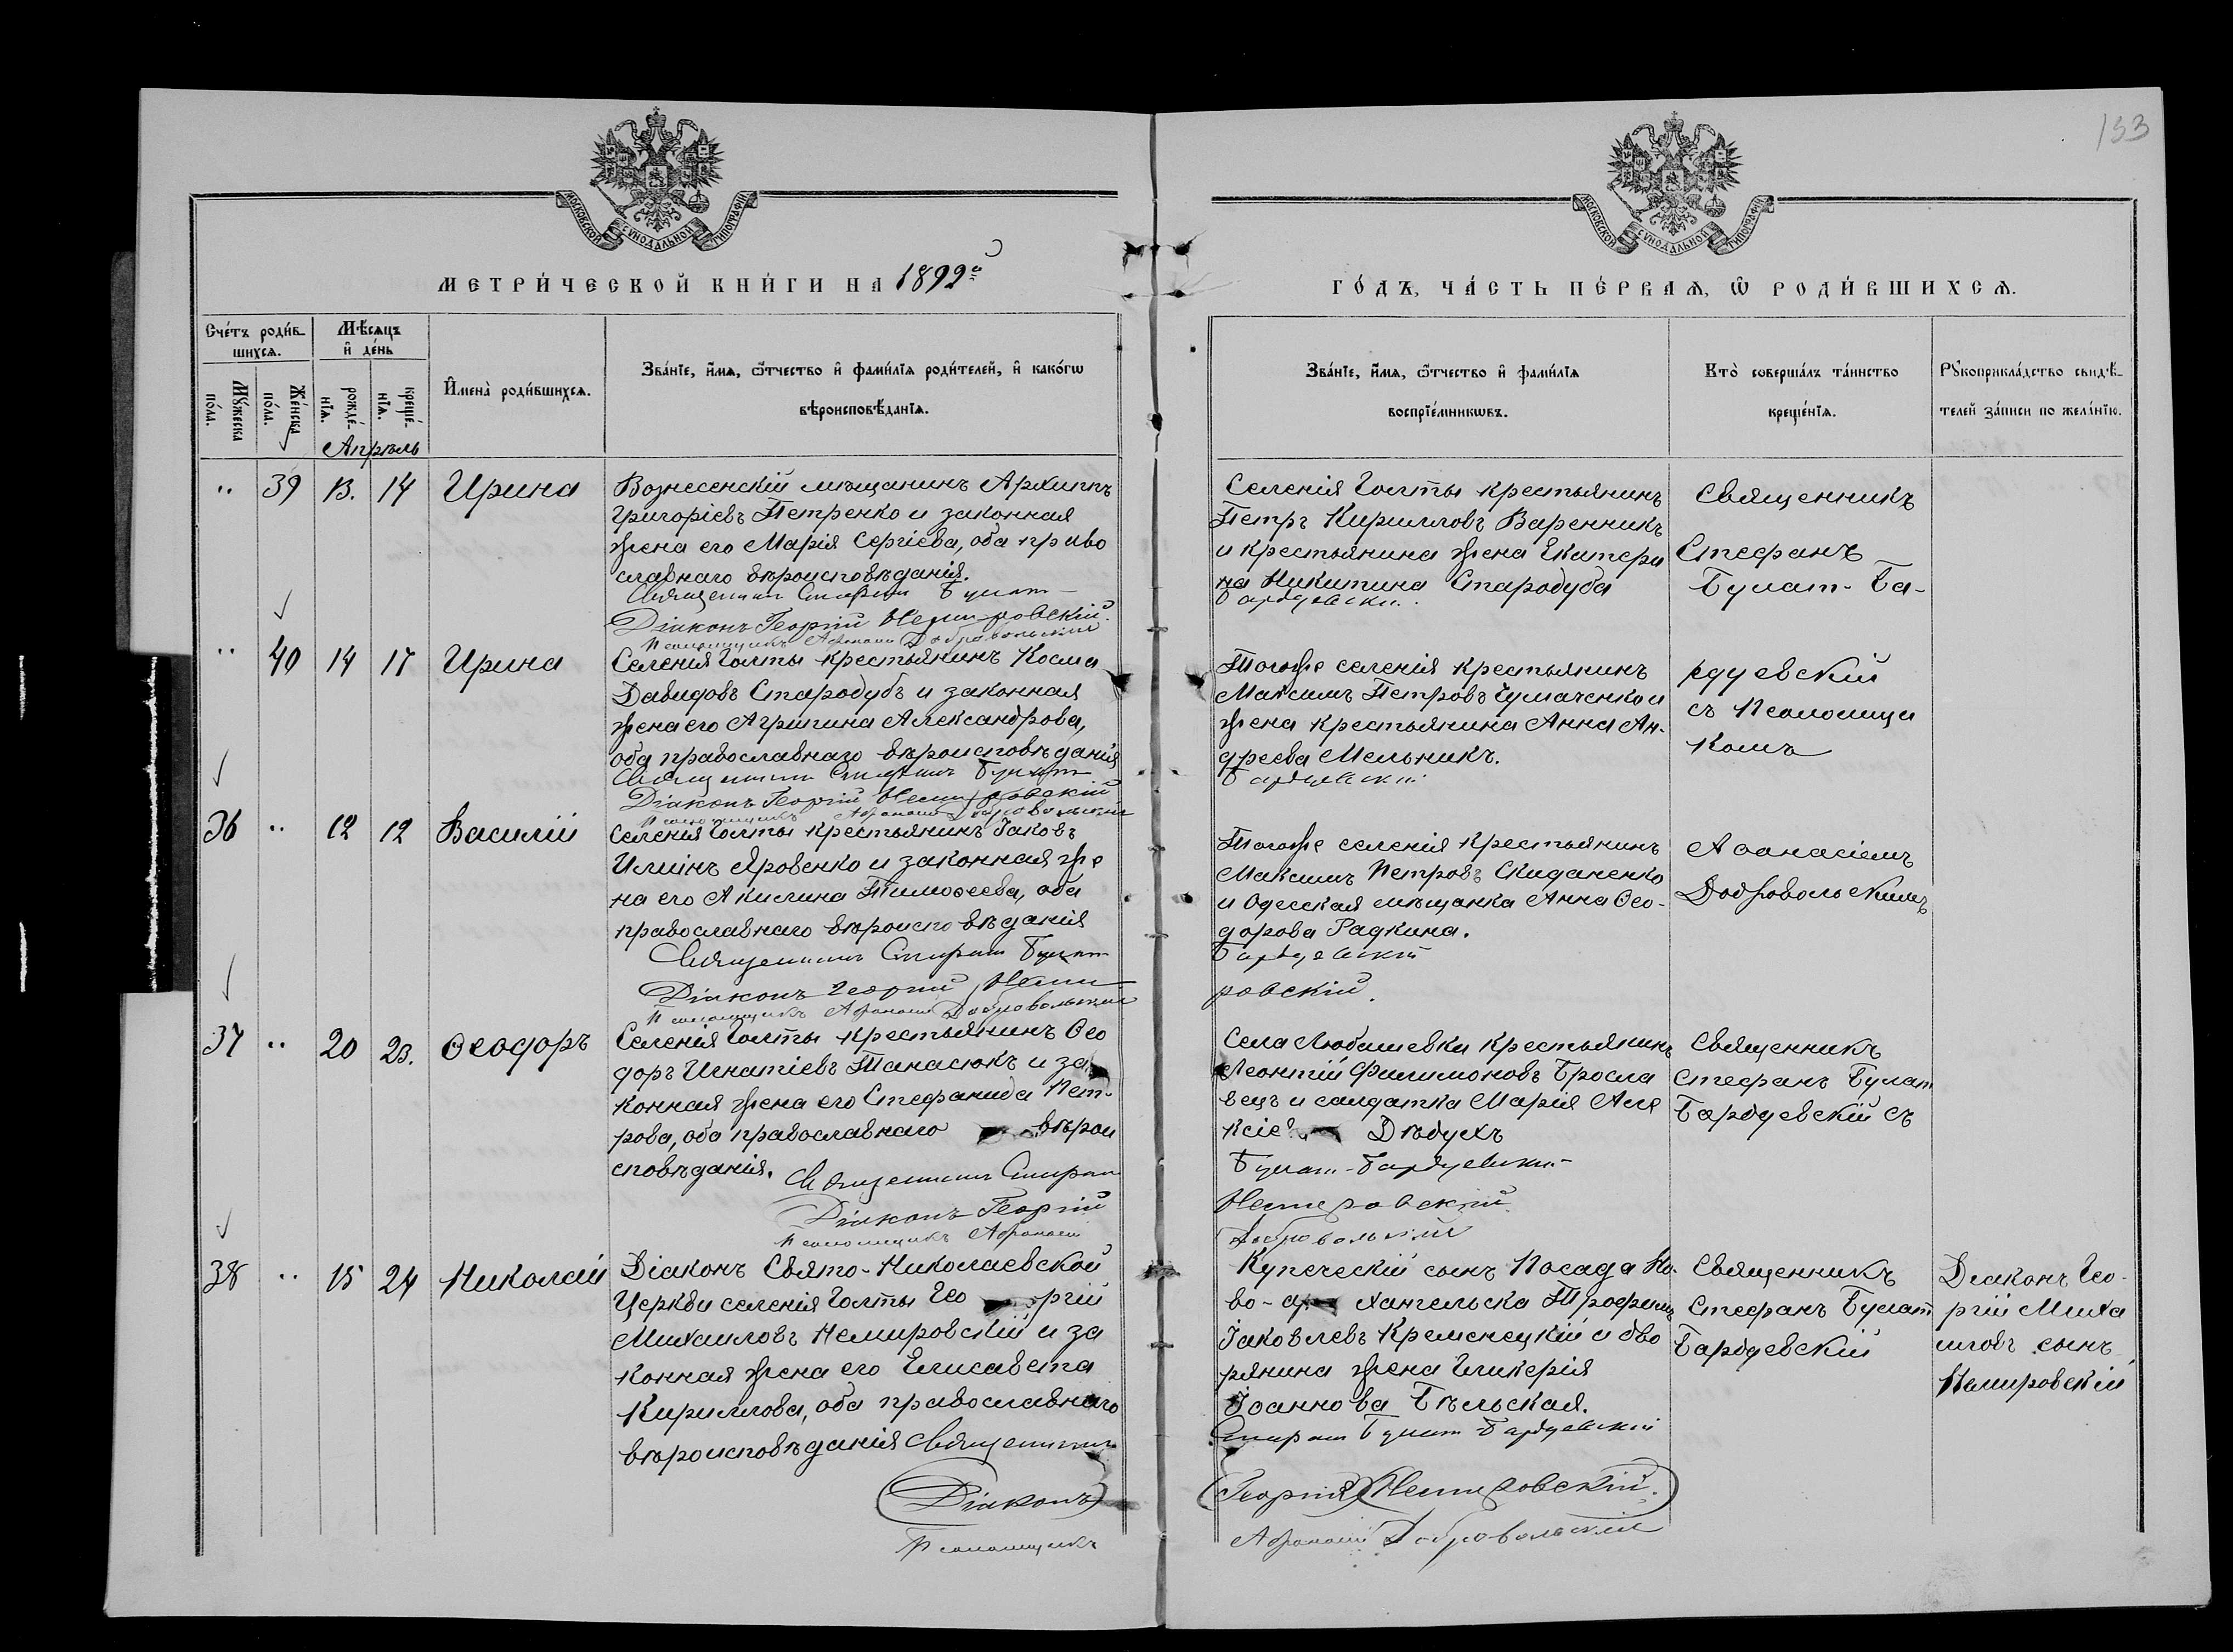 133
МОСКОВСКОЙ СѴНОДАЛЬНОЙ ТИПОГРАФІИ
МОСКОВСКОЙ СѴНОДАЛЬНОЙ ТИПОГРАФІИ
МЕТРИ́ЧЕСКОЙ КНИ́ГИ НА 1892й
ГО́ДЪ, ЧА́СТЬ ПЕ́РВАѦ, Ѽ РОДИ́ВШИХСѦ.
Сче́тъ роди́в-
шихсѧ.
Мꙋ́жеска по́ла.
Же́нска по́ла.
Мѣ́сѧцъ
и҆ де́нь
рожде́-
нїѧ.
креще́-
нїѧ.
И҆мена̀ роди́вшихсѧ.
Зва́нїе, и҆́мѧ, ѻ҆́тчество и҆ фами́лїѧ роди́телей, и҆ како́гѡ
вѣроисповѣ́данїѧ.
Зва́нїе, и҆́мѧ, ѻ҆́тчество и҆ фами́лїѧ
воспрїе́мникѡвъ.
Кто̀ соверша́лъ та́инство
креще́нїѧ.
Рꙋкоприкла́дство свидѣ́-
телей за́писи по жела́нїю.
Апрѣль
" 39 13. 14 Ирина
Вознесенскій мѣщанинъ Архиппъ
Григоріевъ Петренко и законная
жена его Марія Сергіева, оба право
славнаго вѣроисповѣданія.
Священникъ Стефанъ Булат-
Діаконъ Георгій Немировскій.
Псаломщикъ Афанасій Добровольскій
Селенія Голты крестьянинъ
Петръ Кирилловъ Варенникъ
и крестьянина жена Екатери
на Никитина Стародуба
Бардуевскій.
Священникъ
Стефанъ
Булат-Ба-
" 40 14 17 Ирина
Селенія Голты крестьянинъ Косма
Давидовъ Стародубъ и законная
жена его Агрипина Александрова,
оба православнаго вѣроисповѣданія
Священникъ Стефанъ Булат
Діаконъ Георгій Немировскій
Псаломщикъ Афанасій Добровольскій
Тогоже селенія крестьянинъ
Максимъ Петровъ Чумаченко и
жена крестьянина Анна Ан-
дреева Мельникъ.
Бардуевскій
рдуевскій
съ Псаломщи
комъ
36 " 12 12 Василій
Селенія Голты крестьянинъ Іаковъ
Илиинъ Яровенко и законная же
на его Акилина Тимоѳеева, оба
православнаго вѣроисповѣданія
Священникъ Стефанъ Булат
Діаконъ Георгій Неми
Псаломщикъ Афанасій Добровольскій
Тогоже селенія крестьянинъ
Максимъ Петровъ Скиданенко
и Одесская мѣщанка Анна Ѳео-
дорова Радкина.
Бардуевскій
ровскій.
Аѳанасіемъ
Добровольскимъ
37 " 20 23. Ѳеодоръ
Селенія Голты крестьянинъ Ѳео
доръ Игнатіевъ Танасюкъ и за
конная жена его Стефанида Пет-
рова, оба православнаго вѣрои
сповѣданія. Священникъ Стефанъ
Діаконъ Георгій
Псаломщикъ Афанасій
Села Любашевки крестьянинъ
Леонтій Филимоновъ Бросла
вецъ и солдатка Марія Але
ксіев Дѣдухъ
Булат-Бардуевскій
Немировскій
Добровольскій
Священникъ
Стефанъ Булат
Бардуевскій съ
38 " 15 24 Николай
Діаконъ Свято-Николаевской
Церкви селенія Голты Гео ргій
Михаиловъ Немировскій и за
конная жена его Елисавета
Кириллова, оба православнаго
вѣроисповѣданія Священникъ
Діаконъ
Псаломщикъ
Купеческій сынъ Посада Но-
во-ар хангельска Трофимъ
Іаковлевъ Кременецкій и дво
рянина жена Гликерія
Іоаннова Бѣльская.
Стефанъ Булат Бардуевскій
Георгій Немировскій.
Афанасій Добровольскій
Священникъ
Стефанъ Булат
Бардуевскій
Діаконъ Гео-
ргій Миха
иловъ сынъ
Немировскій